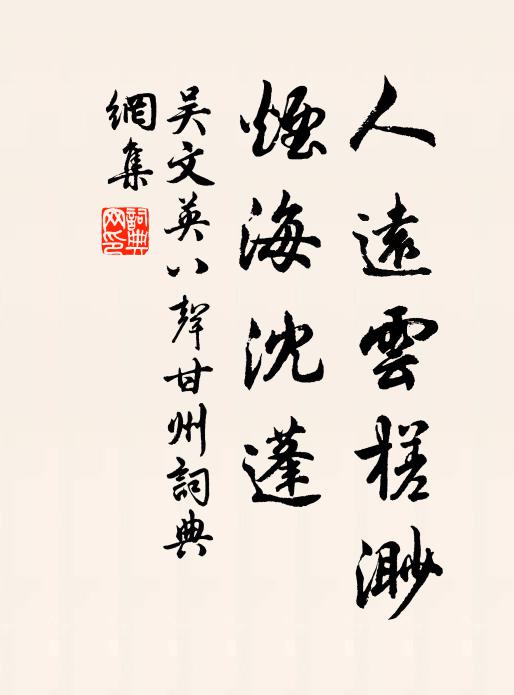 人遠雲槎渺
煙海沈蓬
吴文英八聲甘州詞典
網集
詞典網印